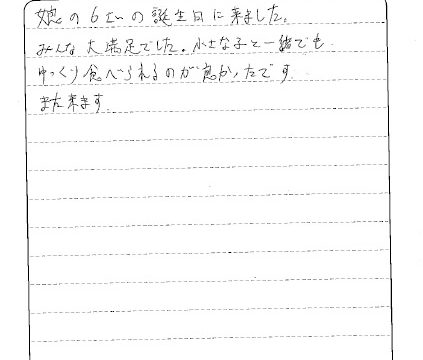 娘の6才の誕生日に来ました。
みんな大満足でした。小さな子と一緒でも
ゆっくり食べられるのが良かったです
また来ます